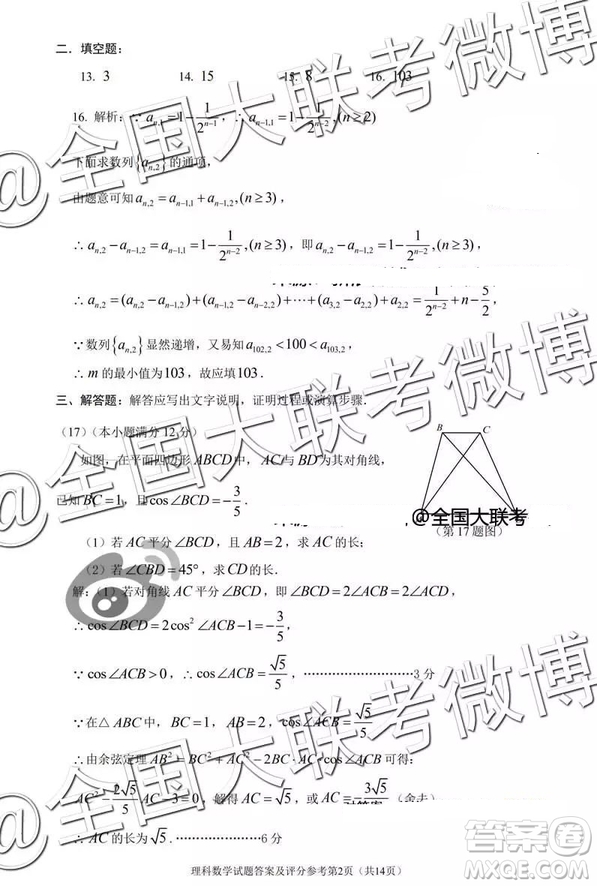 二．填空题：
13．3 14．15 15．8 16．103
16．解析：∵ a_{n,1} = 1 - 1/2^{n-1}，∴ a_{n-1,1} = 1 - 1/2^{n-2}, (n ≥ 2)
下面求数列{a_{n,2}}的通项，
由题意可知 a_{n,2} = a_{n-1,1} + a_{n-1,2}, (n ≥ 3)，
∴ a_{n,2} - a_{n-1,2} = a_{n-1,1} = 1 - 1/2^{n-2}, (n ≥ 3)，即 a_{n,2} - a_{n-1,2} = 1 - 1/2^{n-2}, (n ≥ 3)，
∴ a_{n,2} = (a_{n,2} - a_{n-1,2}) + (a_{n-1,2} - a_{n-2,2}) + ⋯ + (a_{3,2} - a_{2,2}) + a_{2,2} = 1/2^{n-2} + n - 5/2，
∵ 数列{a_{n,2}}显然递增，又易知 a_{102,2} < 100 < a_{103,2}，
∴ m 的最小值为103，故应填103．
三、解答题：解答应写出文字说明，证明过程或演算步骤．
（17）（本小题满分12分）
B C
如图，在平面四边形 ABCD 中，AC 与 BD 为其对角线，
已知 BC = 1，且 cos∠BCD = -3/5．
（第17题图）
（1）若 AC 平分∠BCD，且 AB = 2，求 AC 的长；
（2）若∠CBD = 45°，求 CD 的长．
解：（1）若对角线 AC 平分∠BCD，即∠BCD = 2∠ACB = 2∠ACD，
∴ cos∠BCD = 2cos²∠ACB - 1 = -3/5，
∵ cos∠ACB > 0，∴ cos∠ACB = √5/5，⋯⋯⋯⋯⋯⋯⋯3分
∵ 在△ABC 中，BC = 1，AB = 2，cos∠ACB = √5/5
∴ 由余弦定理 AB² = BC² + AC² - 2BC·AC cos∠ACB 可得：
AC² - 2√5/5 AC - 3 = 0，解得 AC = √5，或 AC = -3√5/5（舍去）
∴ AC 的长为√5．⋯⋯⋯⋯⋯6分
理科数学试题答案及评分参考第2页（共14页）
@全国大联考微博
@全国大联考微博
@全国大联考微博
@全国大联考
答案圈
MXQE.COM